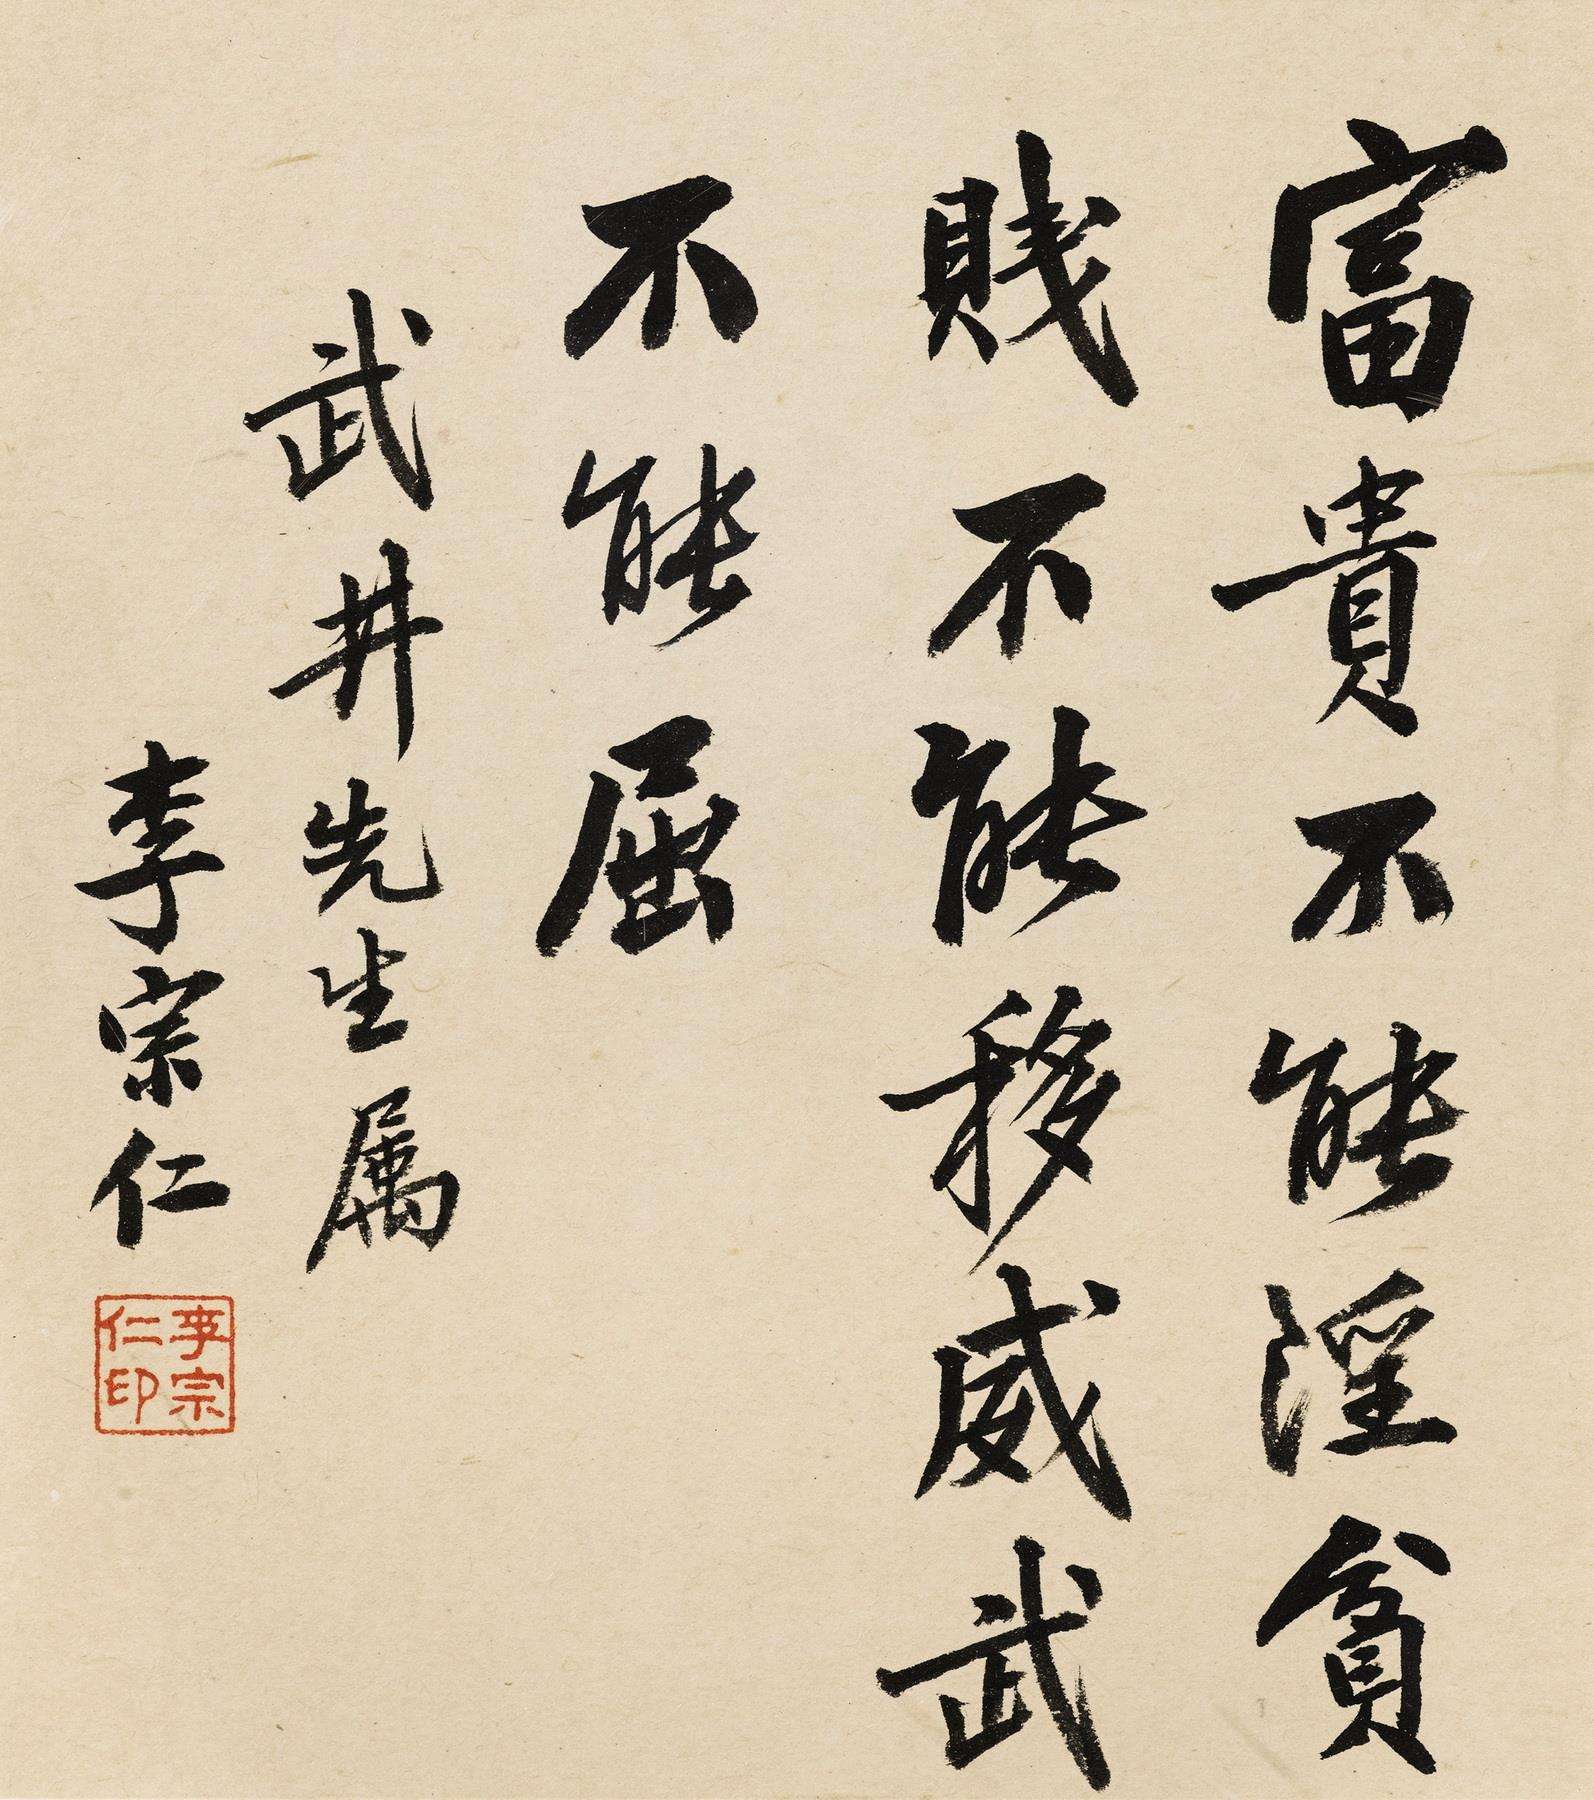 富貴不能淫貧
賤不能移威武
不能屈
武井先生属
李宗仁
李宗
仁印